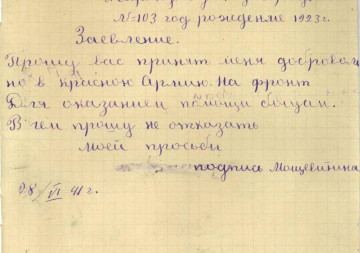 №-103 год рождение 1923 г.
Заевление.
Прошу вас принят меня добровол
но в красною Армию. На фронт
Для оказанием помощи
В чем прошу не отказать
моей просьби
подпись Мощевитина
28/VI 41 г.